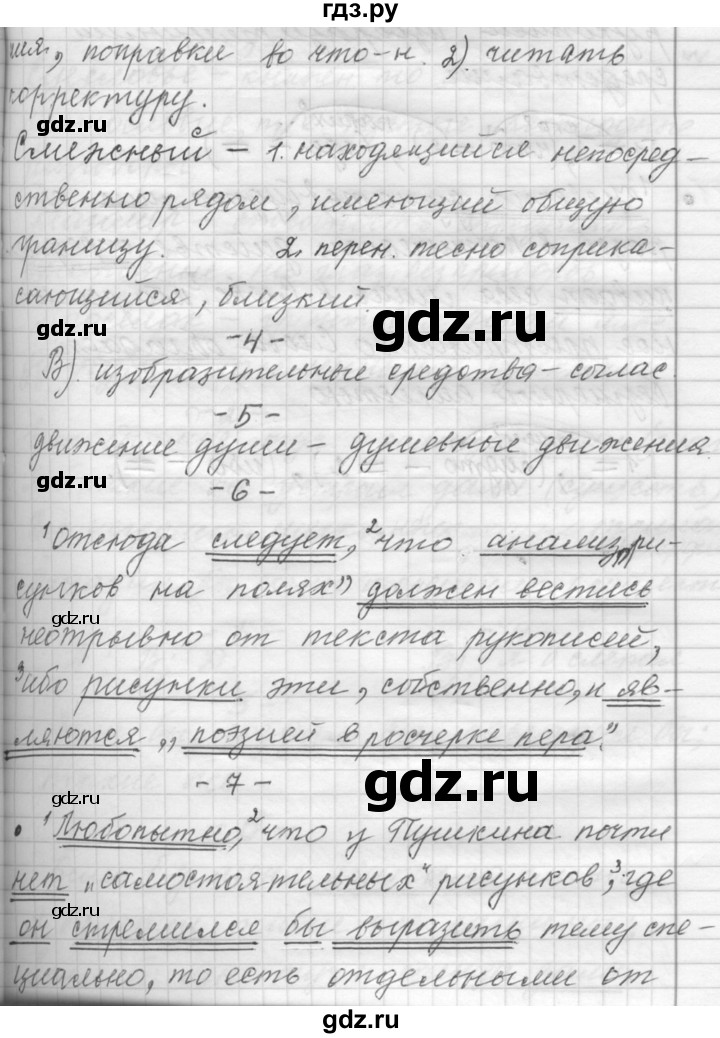 гдз.ру
ия, поправки во что-н. 2). читать
корректуру.
gdz.ru
Смежный – 1. находящийся непосред-
ственно рядом, имеющий общую
границу. 2. перен. тесно соприка-
сающийся, близкий.
gdz.ru
gdz.ru
-4-
В). изобразительные средства – соглас.
-5-
движение души – душевные движения.
gdz.ru
-6-
1 Отсюда следует, 2 что анализ "ри-
сунков на полях") должен вестись
gdz.ru
неотрывно от текста рукописей,
3 ибо рисунки эти, собственно, и яв-
ляются „поэзией в росчерке пера."
gdz.ru
-7-
gdz.ru
• 1 Любопытно, 2 что у Пушкина почти
нет „самостоятельных" рисунков, 3 где
gdz.ru
он стремился бы выразить тему спе-
циально, то есть отдельными от
gdz.ru
gdz.ru